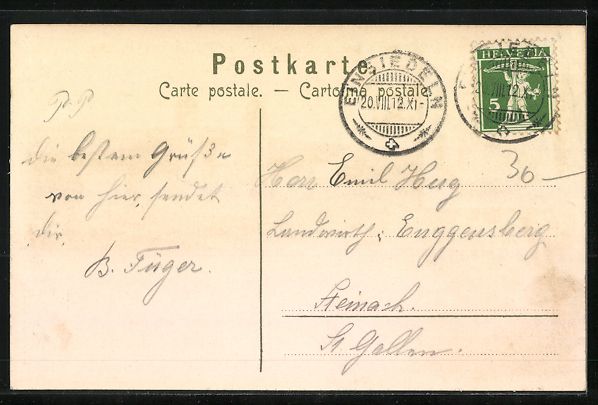 Postkarte.
Carte postale. — Cartolina postale.
EINSIEDELN
20.VIII.12.XI-
HELVETIA
5
P.P.
die besten Grüße
von hier, sendet
dir,
B. Füger.
30 —
Herr Emil Herg
Landwirth, Enggensberg
Steinach.
St Gallen.